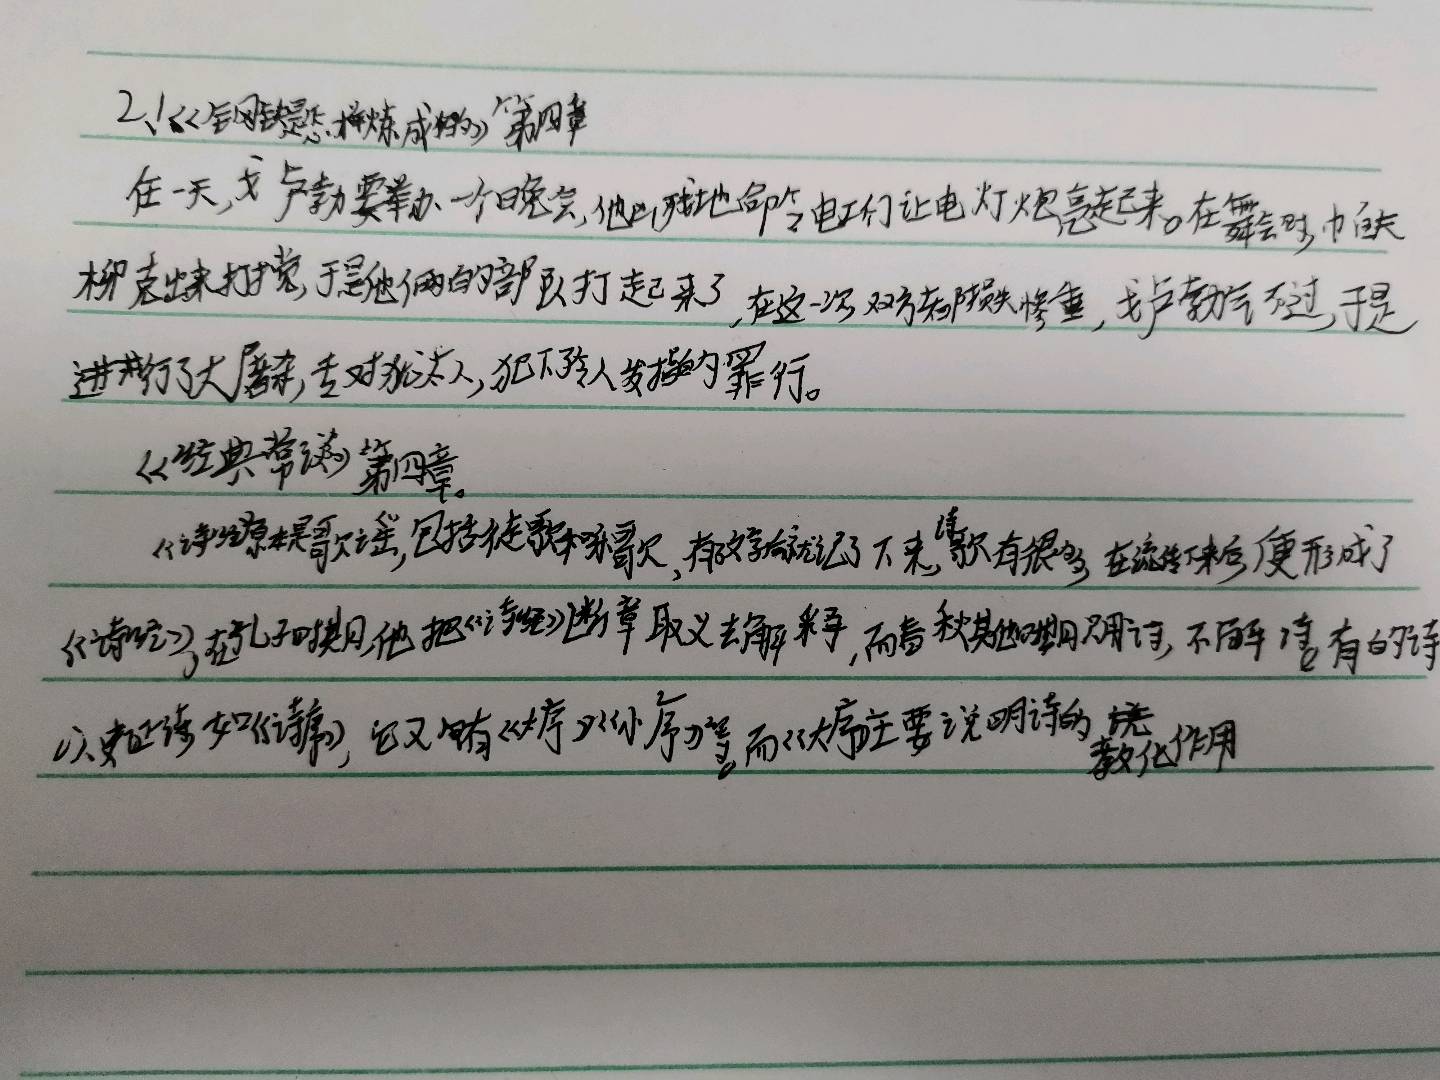 2、《钢铁是怎样炼成的》第四章
在一天,戈卢勃要举办一个晚会,他凶残地命令电工们让电灯炮亮起来。在舞会时,帕夫
柳克出来打扰,于是他们俩的部队打起来了,在这一次双方都损失惨重,戈卢勃气不过,于是
进行了大屠杀,专对犹太人,犯下令人发指的罪行。
《经典常谈》第四章。
《诗经》原本是歌谣,包括徒歌和乐歌,有文字后就记了下来,诗歌有很多,在流传下来后便形成了
《诗经》,在孔子时期,他把《诗经》断章取义去解释,而春秋其他时期只用诗,不解诗。有的诗
以史证诗如《诗序》,它又有《大序》《小序》等。而《大序》主要说明诗的教化作用